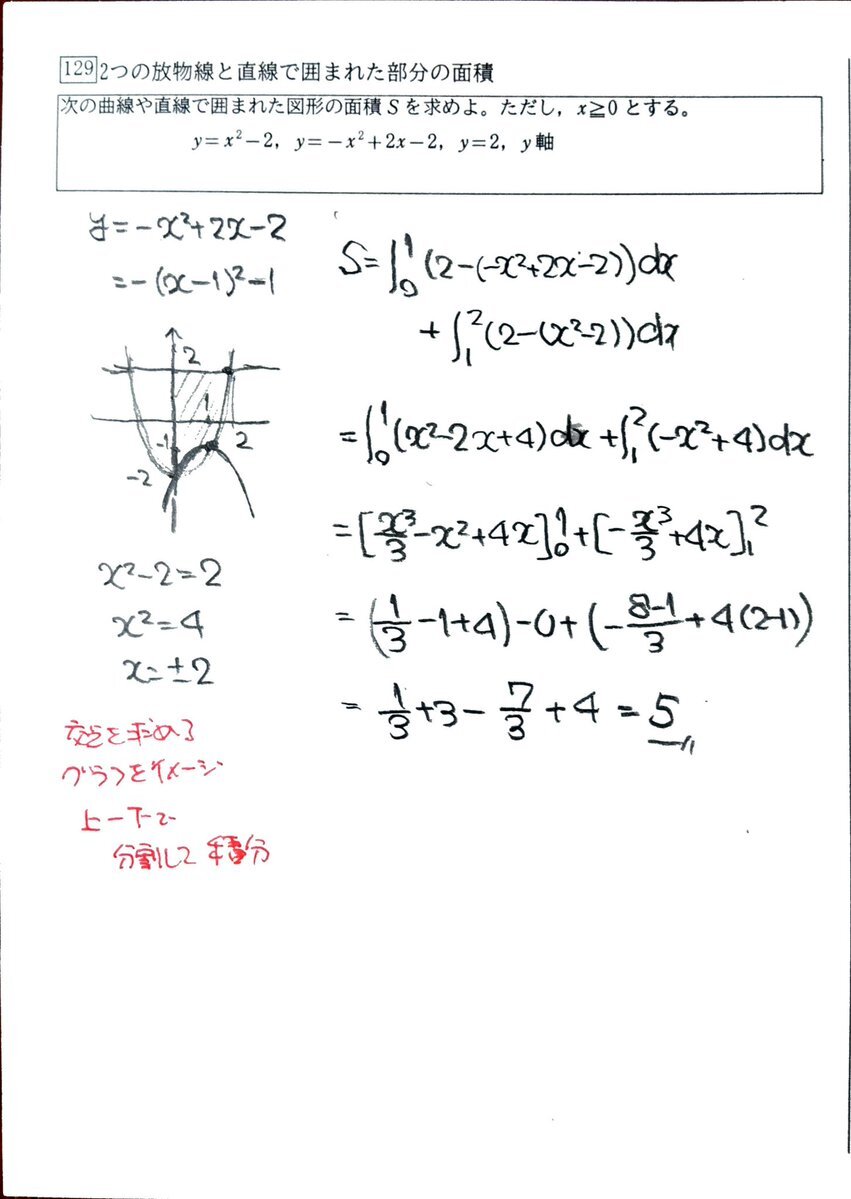 129 2つの放物線と直線で囲まれた部分の面積
次の曲線や直線で囲まれた図形の面積 S を求めよ。ただし, x≧0 とする。
y=x²−2, y=−x²+2x−2, y=2, y軸
y=−x²+2x−2
=−(x−1)²−1
2
1
-1
2
-2
x²−2=2
x²=4
x=±2
交点を求める
グラフをイメージ
上−下で
分割して積分
S=∫₀¹(2−(−x²+2x−2))dx
+∫₁²(2−(x²−2))dx
=∫₀¹(x²−2x+4)dx+∫₁²(−x²+4)dx
=[x³/3−x²+4x]₀¹+[−x³/3+4x]₁²
=(1/3−1+4)−0+(−8−1/3+4(2−1))
=1/3+3−7/3+4=5